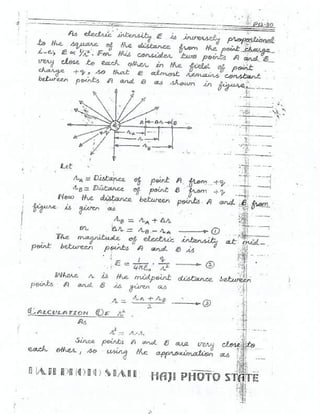 PH-80
As electric intensity E is inversely proportional
to the square of the distance from the point charge
i-e, E ∝ 1/r². For this consider two points A and B
very close to each other in the field of point
charge +q, so that E almost remains constant
between points A and B as shown in figure.
A Δr B
rA
r
rB
Let
rA = Distance of point A from +q
rB = Distance of point B from +q
Now the distance between points A and B from
figure is given as
rB = rA + Δr
or Δr = rB - rA → ①
The magnitude of electric intensity at mid-
point between points A and B is
E = 1/4πε₀ q/r² → ②
Where r is the midpoint distance between
points A and B is given as
r = rA + rB / 2 → ③
CALCULATION OF r².
As
r² = r.r
Since points A and B are very close to
each other, so using the approximation as
HAJI PHOTO STATE HAJI PHOTO STATE